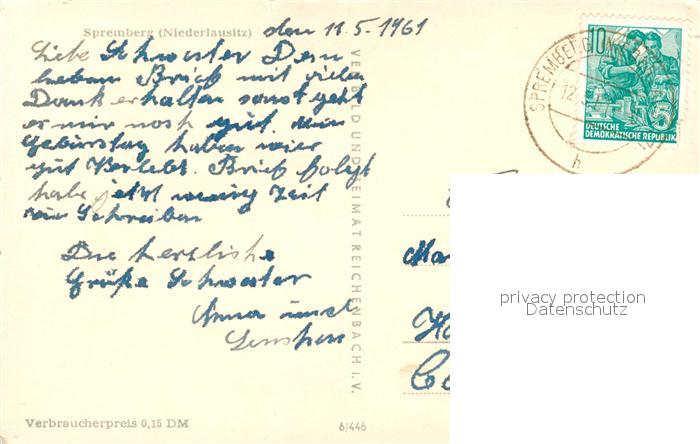 Spremberg (Niederlausitz) den 11.5.1961
Liebe Schwester Dein
lieben Brief mit vielen
Dank erhalten sonst geht
es mir noch gut. mein
Geburtstag haben wier
gut Verlebt. Brief folgt
habe jetzt wenig Zeit
zum Schreiben
Die herzliche
Grüße Schwester
Anna und
VERLAG BILD UND HEIMAT REICHENBACH I. V.
10
5
DEUTSCHE
DEMOKRATISCHE REPUBLIK
SPREMBERG
12.
h
Ma
privacy protection
Datenschutz
Verbraucherpreis 0,15 DM
6/446